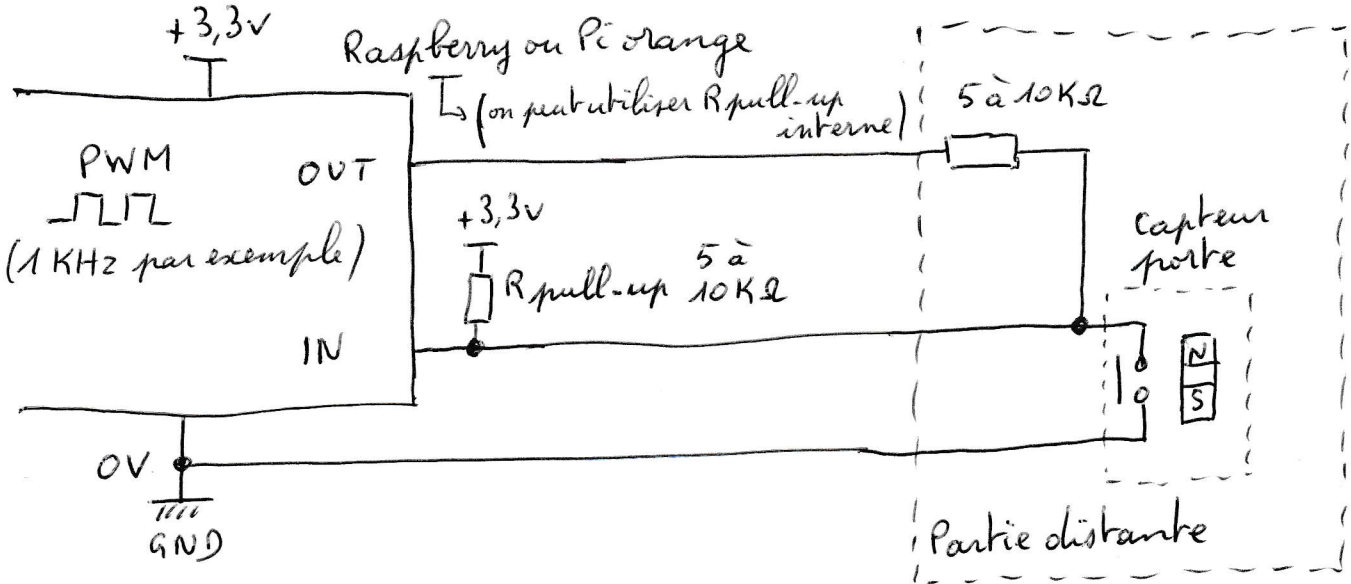 +3,3v
Raspberry ou Pi orange
(on peut utiliser R pull-up
interne)
5 à 10KΩ
PWM
OUT
(1 KHz par exemple)
+3,3v
R pull-up 5 à
10KΩ
Capteur
porte
IN
N
S
0V
GND
Partie distante